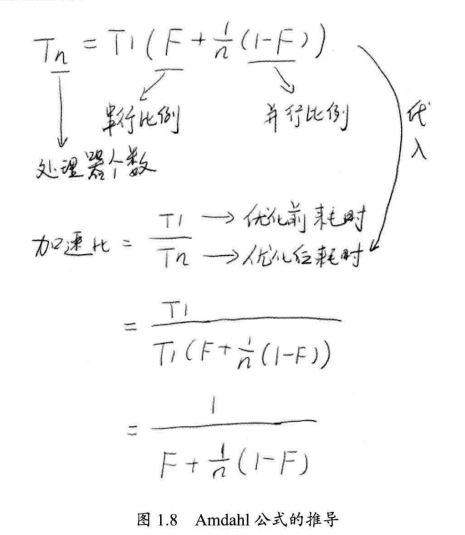 Tn = T1(F + 1/n(1-F))
串行比例 并行比例
处理器个数
代入
加速比 = T1/Tn → 优化前耗时
→ 优化后耗时
= T1/T1(F+1/n(1-F))
= 1/F+1/n(1-F)
图 1.8 Amdahl 公式的推导